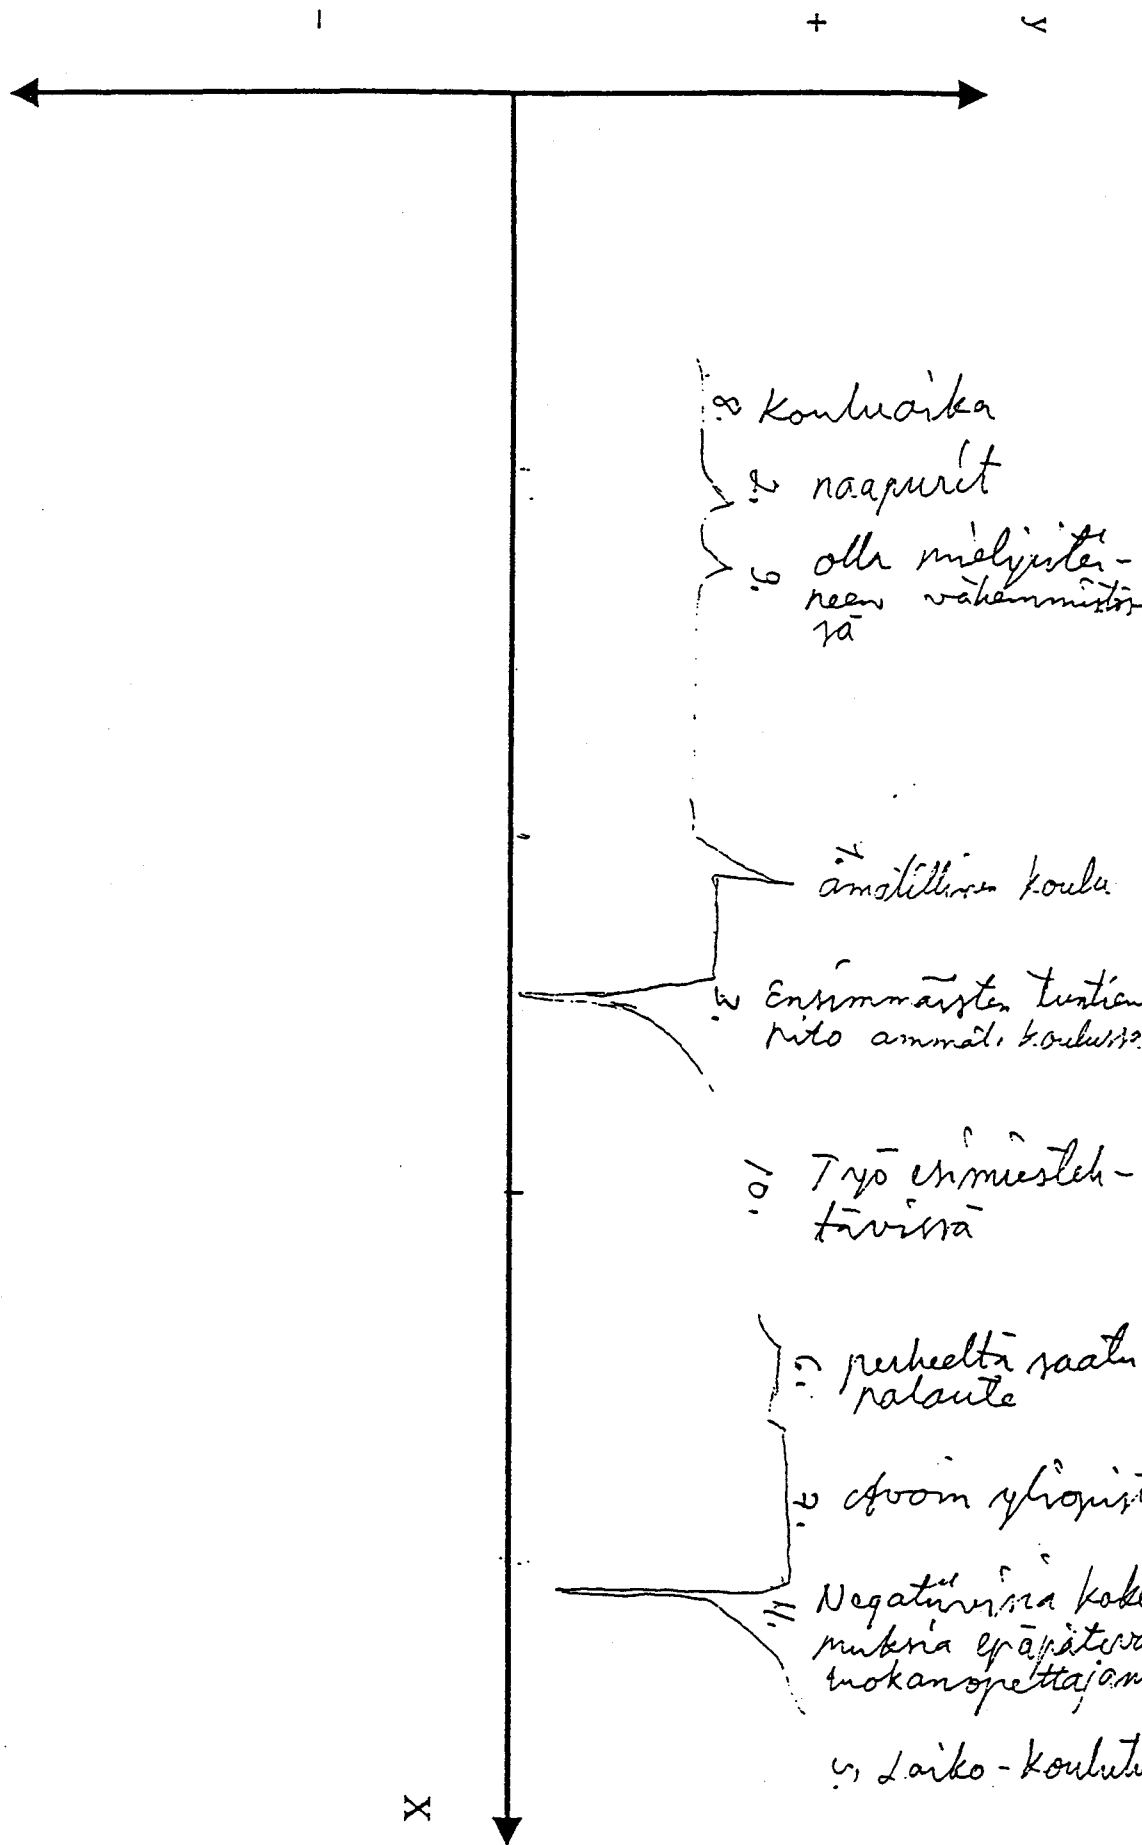 y
+
-
8. Kouluaika
2. naapurit
9. olla mielipitei-
neen vähemmistös
sä
1. ámatillinen koulu
3. Ensimmäisten tuntien
pito ammat. koulussa
10. Työ esimiesteh-
tävissä
6. perheeltä saatu
palaute
7. Avoin yliopist
4. Negatiivisia koke
muksia epäpätevä
luokanopettajan
5. Laiko-koulutu
X